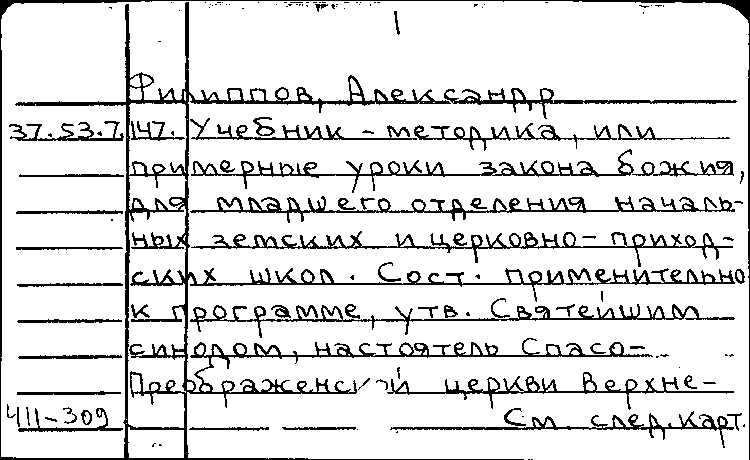 1
Филиппов, Александр
37.53.7.147. Учебник - методика, или
примерные уроки закона божия,
для младшего отделения началь-
ных земских и церковно-приход-
ских школ. Сост. применительно
к программе, утв. Святейшим
синодом, настоятель Спасо-
Преображенской церкви Верхне-
411-309 См. след. карт.